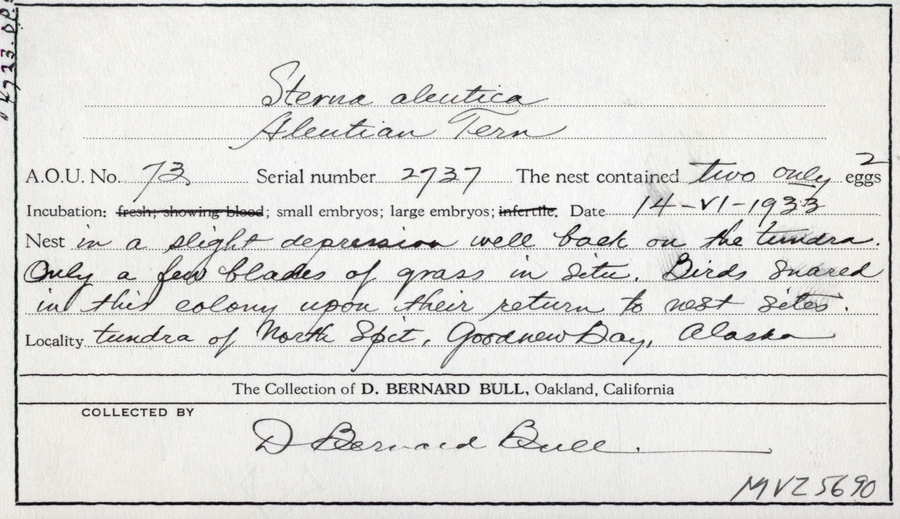 Sterna aleutica
Aleutian Tern
A.O.U. No. 73 Serial number 2737 The nest contained two only 2 eggs
Incubation: fresh; showing blood; small embryos; large embryos; infertile. Date 14-VI-1933
Nest in a slight depression well back on the tundra.
Only a few blades of grass in situ. Birds snared
in this colony upon their return to nest sites.
Locality tundra of North Spit, Goodnew Bay, Alaska
The Collection of D. BERNARD BULL, Oakland, California
COLLECTED BY
D Bernard Bull.
MVZ 5690